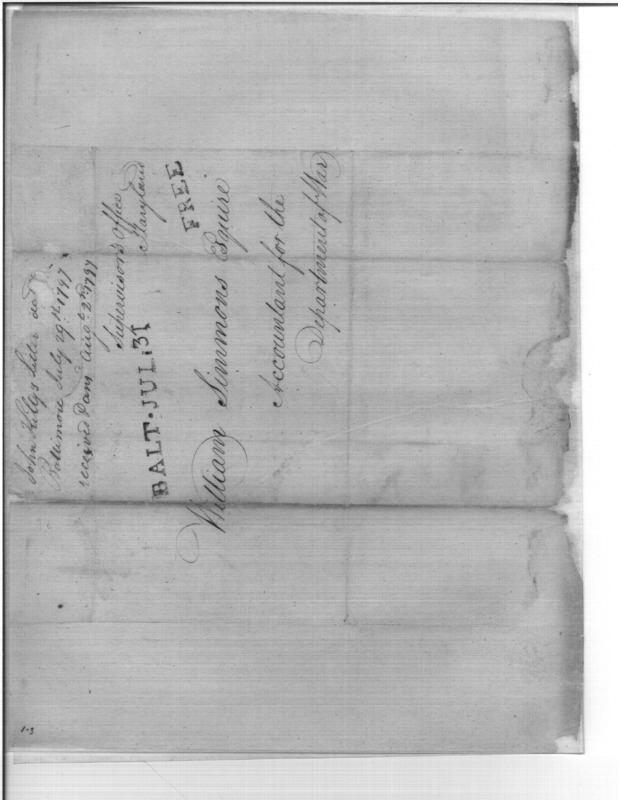 John Kellys letter dad
Baltimore July 29th 1797
received & ansd Augt 2nd 1797
Supervisor's Office
Maryland
BALT·JUL:31
FREE
William Simmons Esquire
Accountant for the
Department of War
1-3